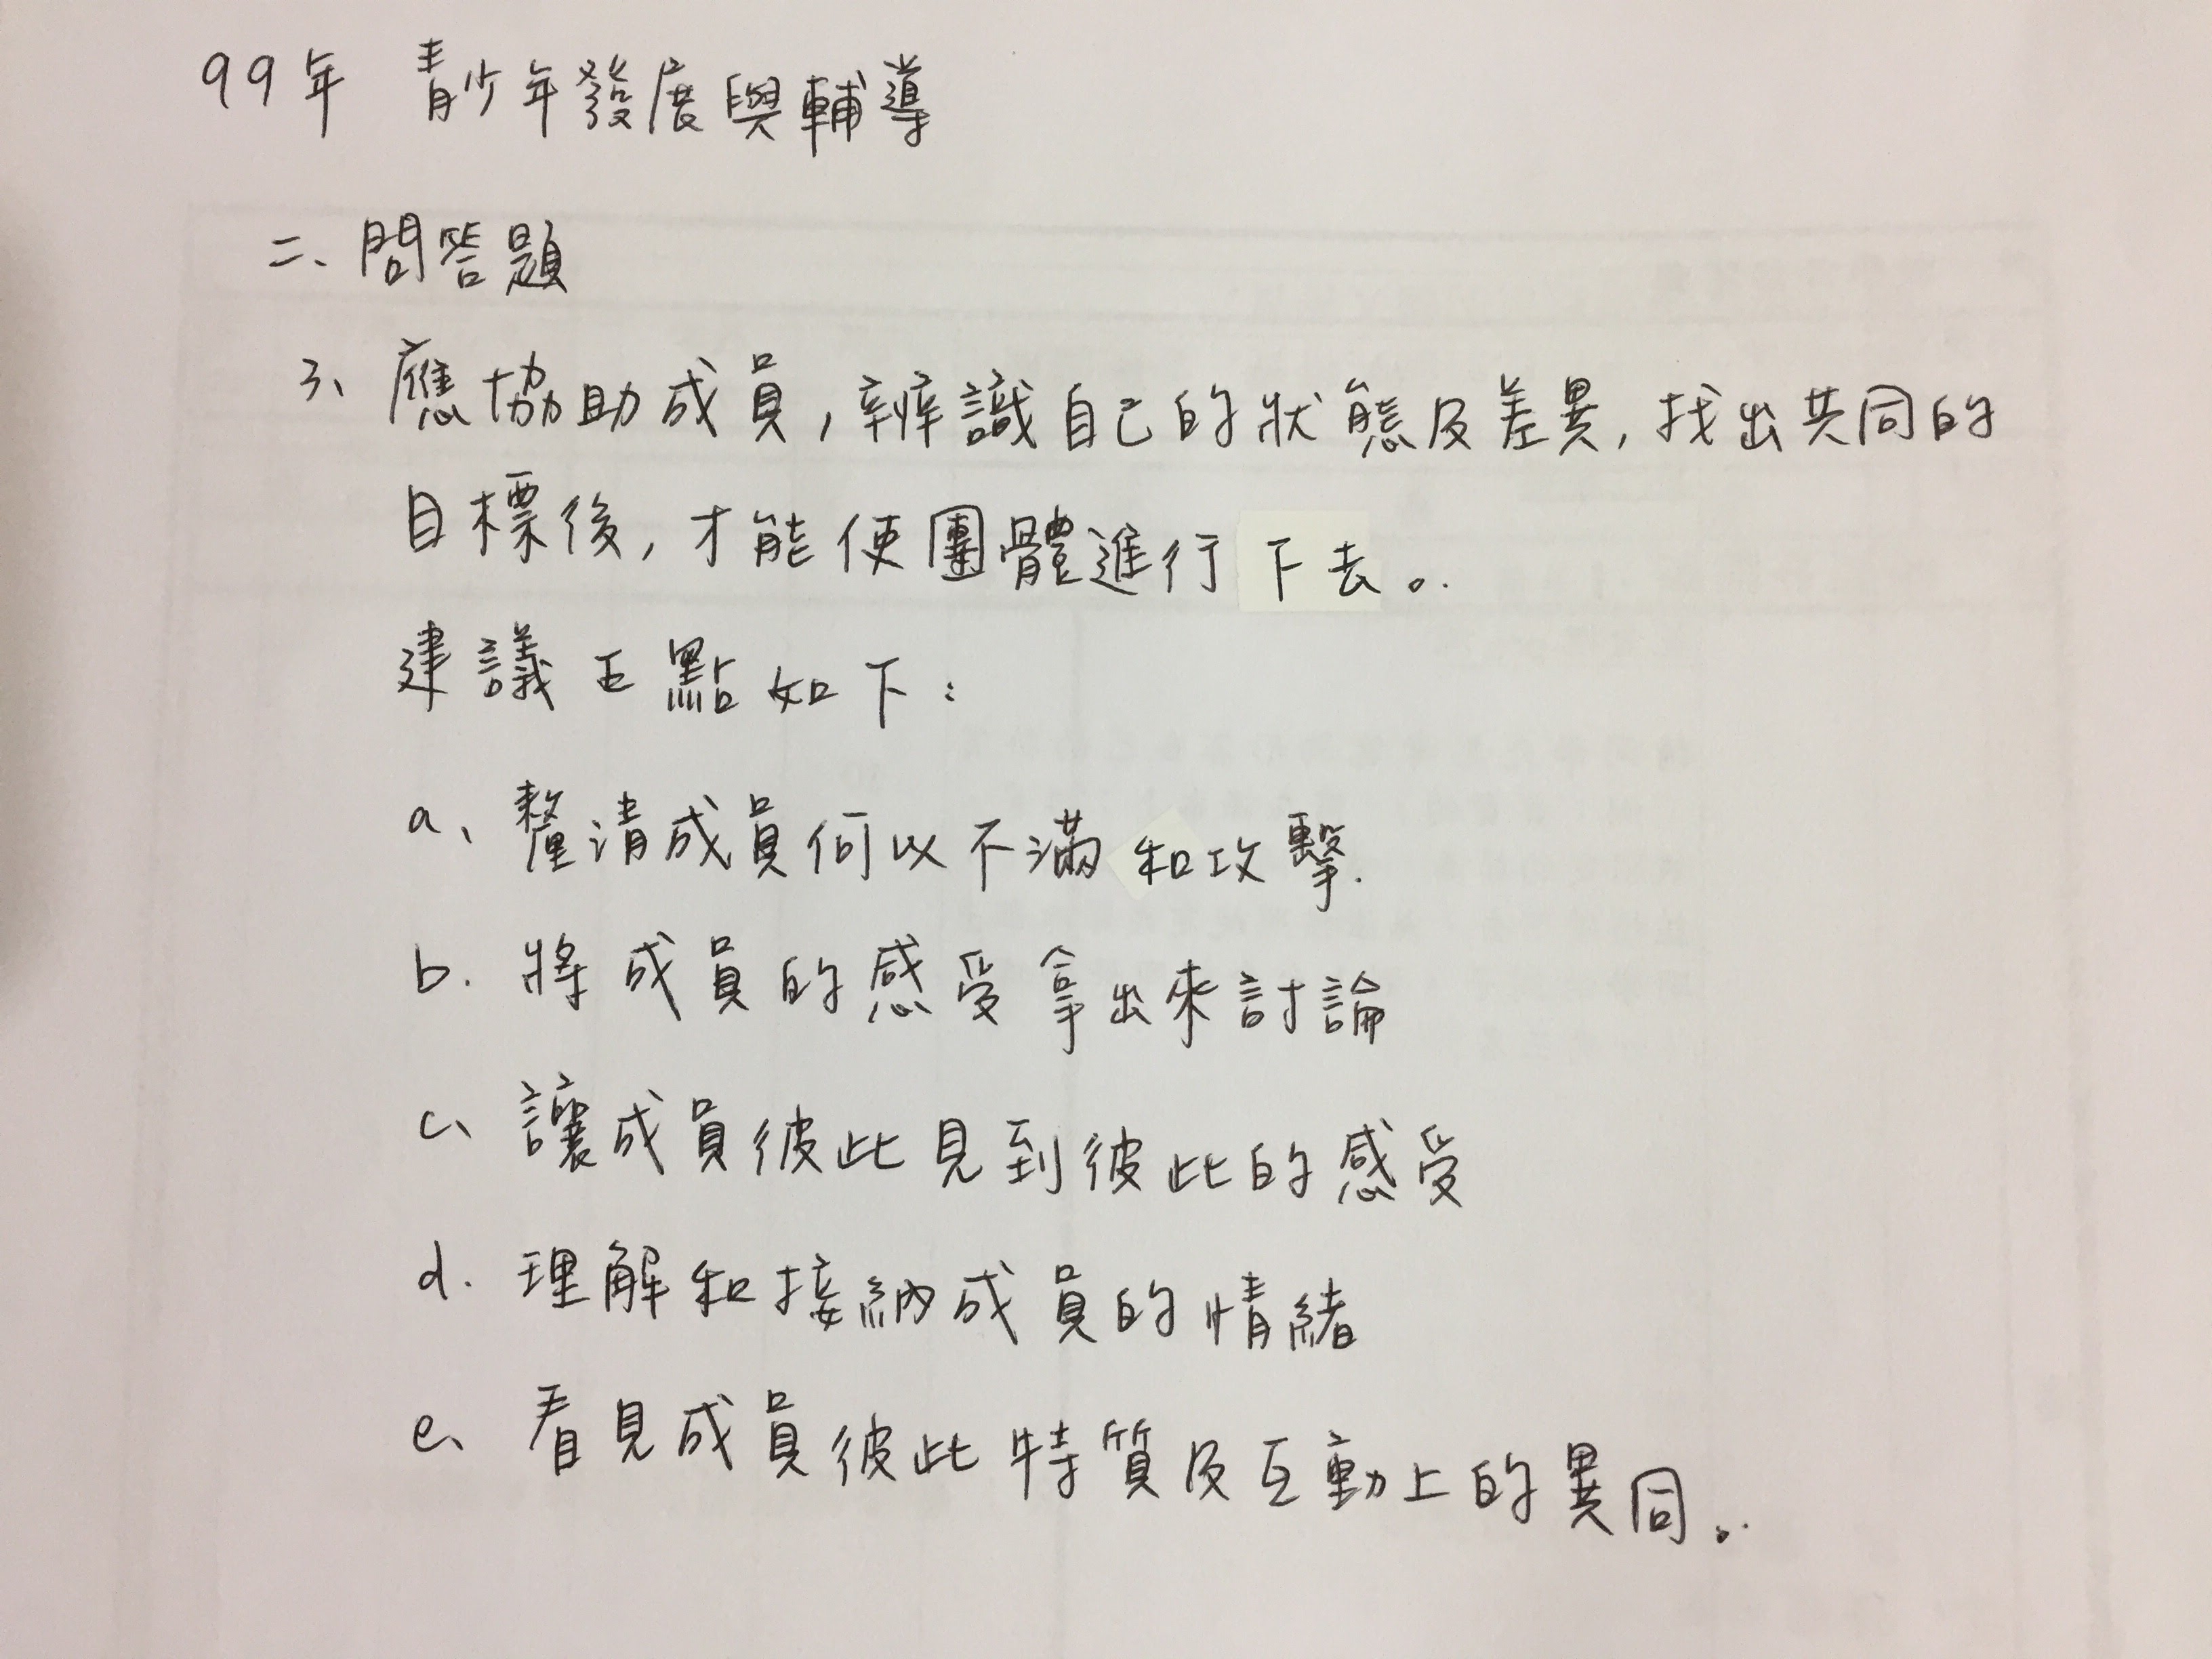 99年 青少年發展與輔導
二、問答題
3、應協助成員,辨識自己的狀態及差異,找出共同的
目標後,才能使團體進行下去。
建議五點如下:
a、釐清成員何以不滿和攻擊.
b. 將成員的感受拿出來討論
c、讓成員彼此見到彼此的感受
d. 理解和接納成員的情緒
e、看見成員彼此特質及互動上的異同。